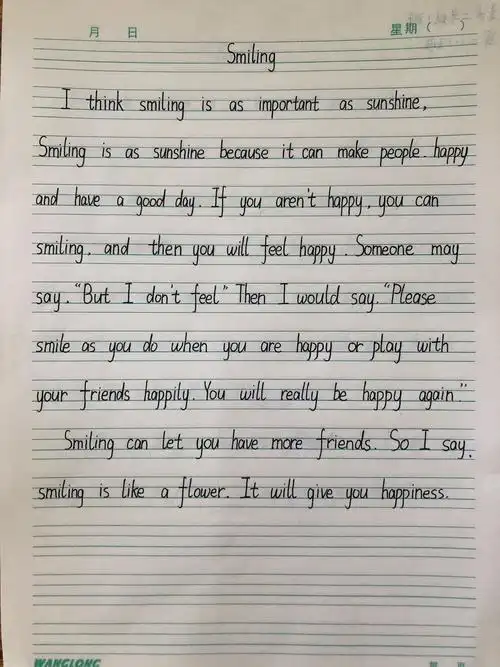 月 日 星期 ( )
Smiling
I think smiling is as important as sunshine.
Smiling is as sunshine because it can make people happy
and have a good day. If you aren't happy, you can
smiling, and then you will feel happy. Someone may
say, "But I don't feel" Then I would say. "Please
smile as you do when you are happy or play with
your friends happily. You will really be happy again"
Smiling can let you have more friends. So I say,
smiling is like a flower. It will give you happiness.
WANGLONG